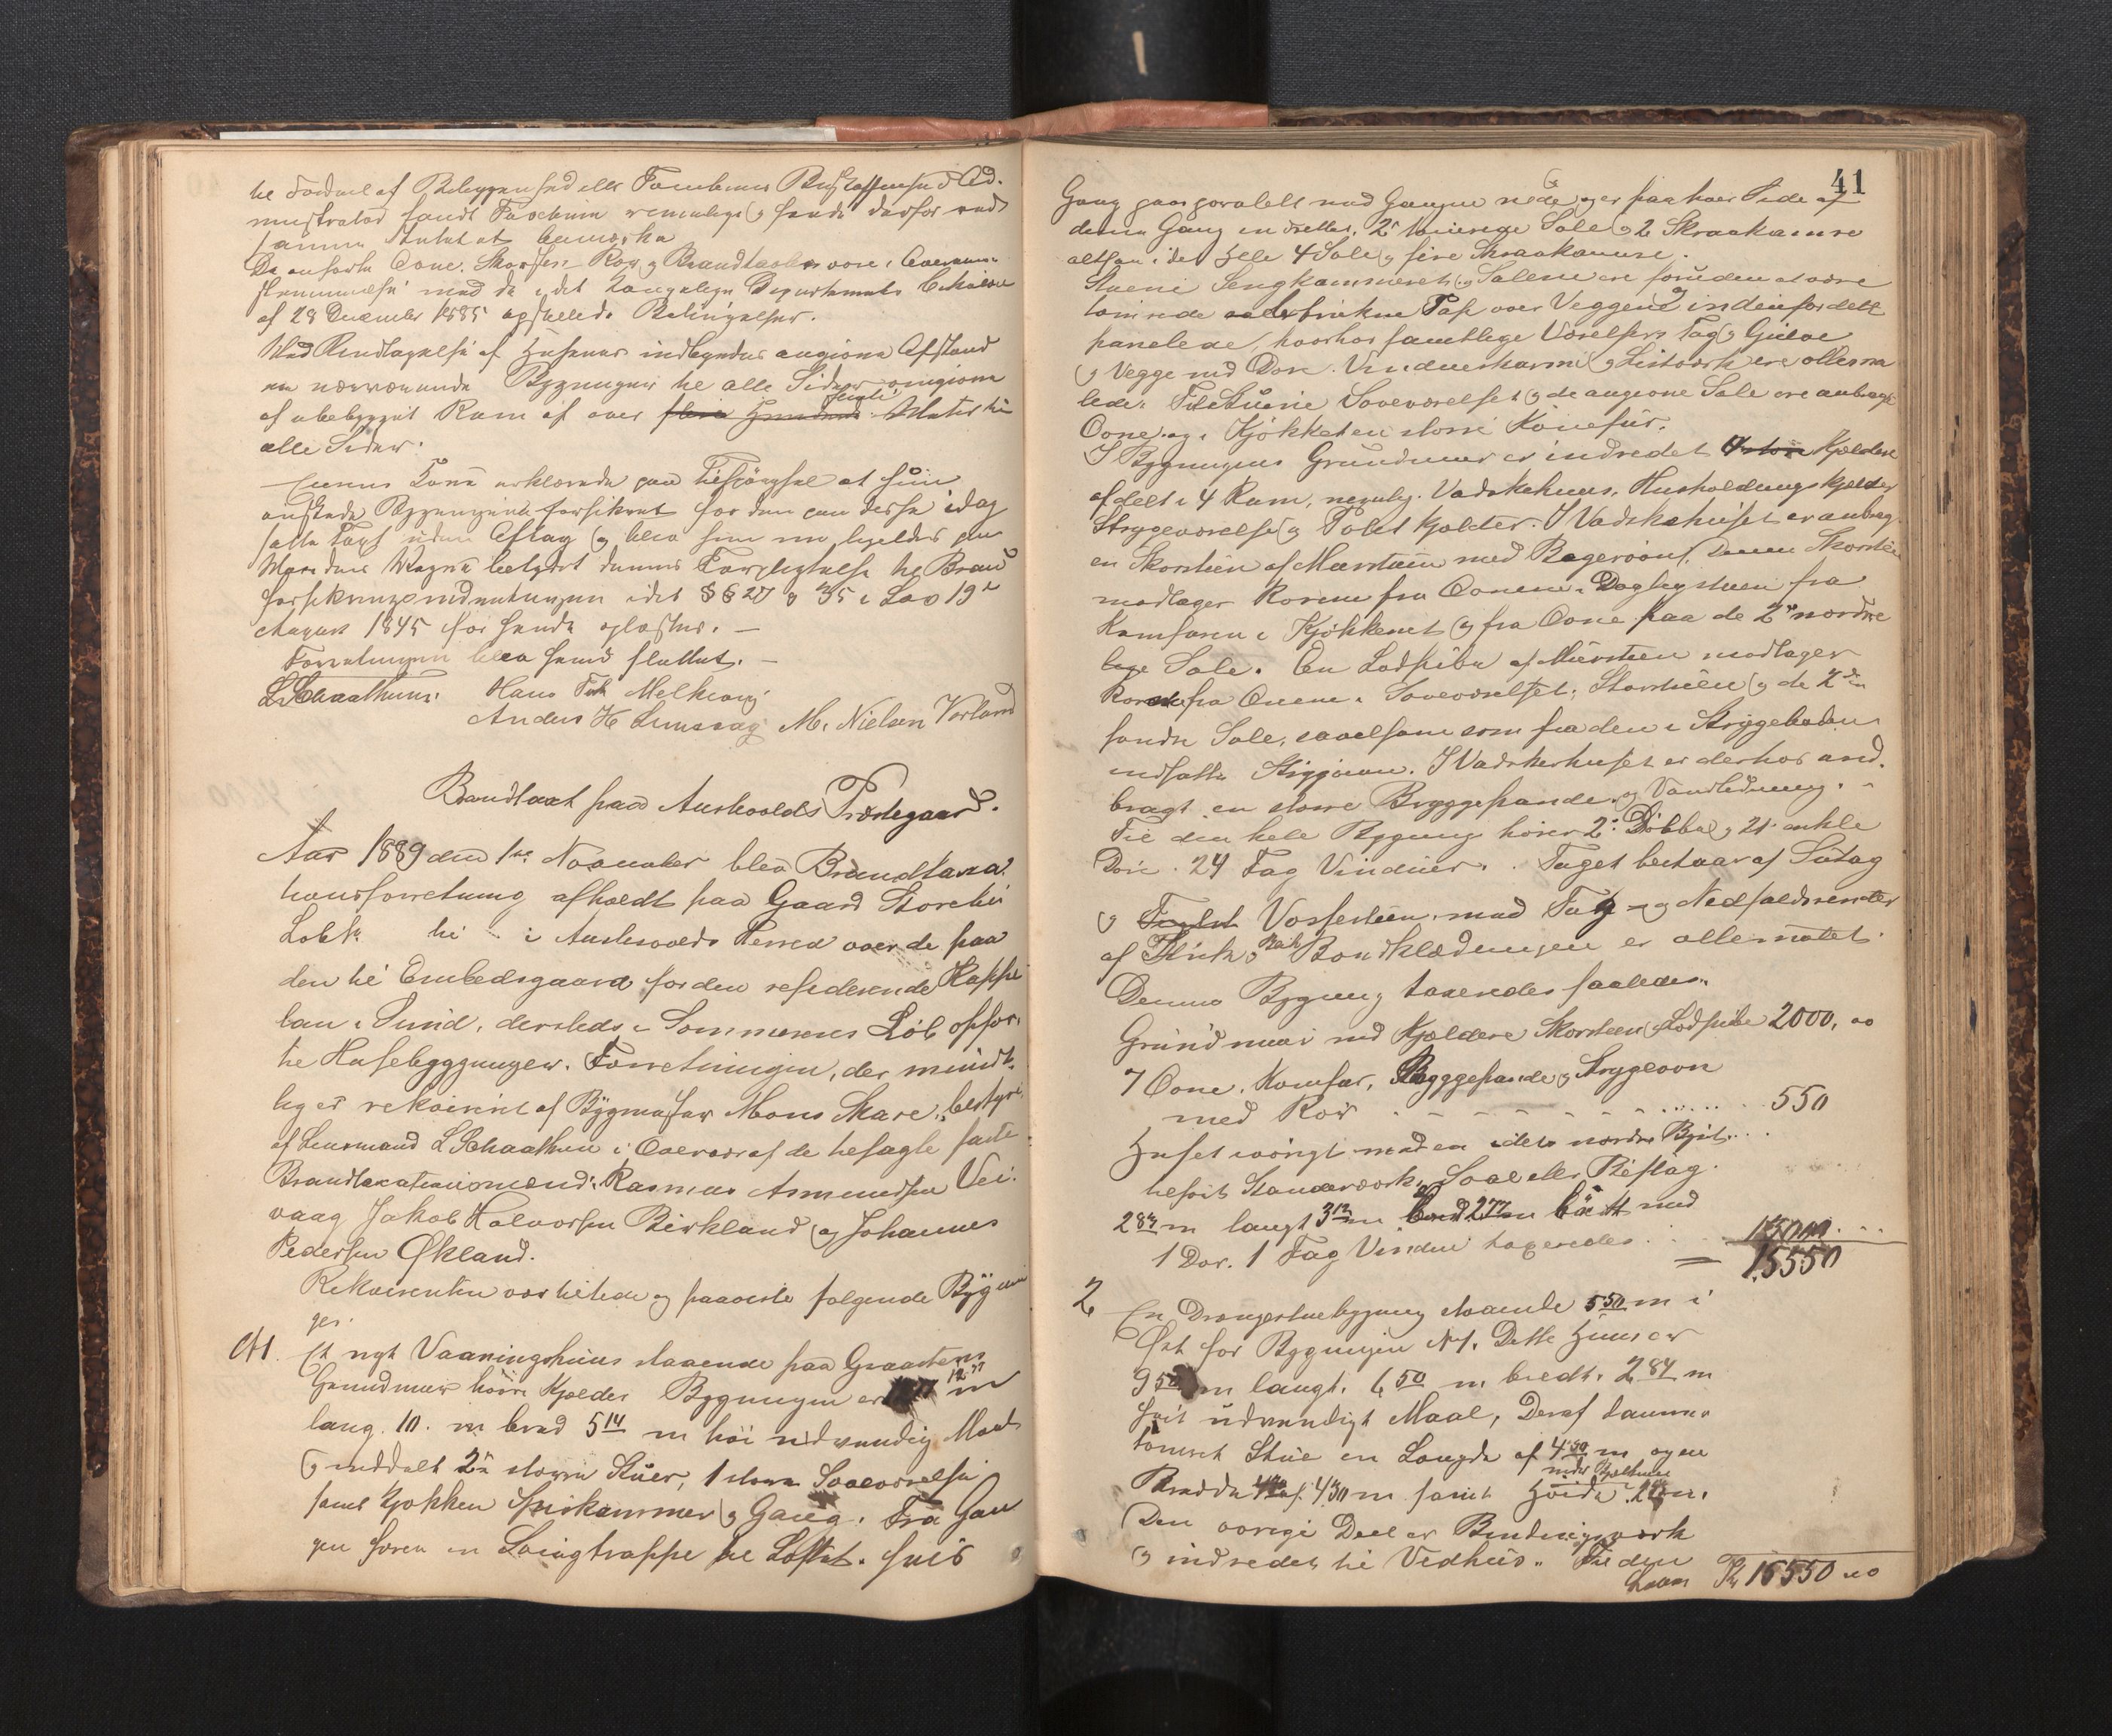 til Fordeel af Beliggenhed eller Tomternes Beskaffenhed Ad-
ministrator fandt Taxtsum rimelige og havde derfor ved
samme Intet at bemærke
De anførte Ovne, Skorsten Rør og Brandtavler vare i Overeens-
stemmelse med de i det Kongelige Departements Cirkulære
af 28 December 1885 opstillede Betingelser.
Med Rendtagelse af Husenes indbyrdes angivne Afstand
er nærværende Bygninger til alle Sider omgivne
af ubebygget Rum af over Meter til
alle Sider.
Kone erklærede paa Tilspørgsel at hun
ønskede Bygningerne forsikret for den paa disse idag
satte Taxt uden Aftag og blev hun
betydet dennes Forpligtelse til Brand
forsikringsindretningen idet §§ 27 og 35 i Lov 19de
August 1845 for hende oplæstes. —
Forretningen blev hermed sluttet. —
L. Schaathun. Hans Melkevig
Anders H M. Nielsen Vorland
Brandtaxt paa Austvolds Præstegaard.
Aar 1889 den 1ste November blev Brandtaxa-
tionsforretning afholdt paa Gaard Storebø
Løbe No i Austevolds Herred over de paa
den til Embedsgaard for den residerende Kappe-
lan i Sund, dersteds i Sommerens Løb opfør-
te Husebygninger. Forretningen, der mundt-
lig er rekvireret af Bygmester Mons Skare, bestyres
af Lensmand L Schaathun i Overvær af de tilsagte faste
Brandtaxationsmænd: Rasmus Asmundsen Vei-
vaag Jakob Halvorsen Birkland og Johannes
Pedersen Økland.
Rekvirenten var tilstede og paaviste følgende Bygnin
ger.
No 1. Et nyt Vaaningshuus staaende paa Graasteens
Grundmuur hvori Kjelder Bygningen er 12 m
lang. 10. m bred 5 14 m høi udvendig Maal
og inddelt 2de større Stuer, 1 større Soveværelse
samt Kjøkken Spiskammer og Gang. Fra Gan
gen fører en Svingtrappe til Loftet. hvis
41
Gang gaar paralelt med Gangen nede og er paa hver Side af
denne Gang indrettet 2de Sale og 2 Skraakamre
altsaa i det Hele 4 Sale og fire Skraakamre.
Stuerne Sengkammeret og Salene ere foruden at være
tømrede Pap over Veggene og indenfor dett
panelede, hvorhos samtlige Værelsers Tag og Gulve
og Vegge med Døre. Vindueskarme og Listværk ere oljema
lede. I Stuerne Soveværelset og de angivne Sale ere anbragt
Ovne og i Kjøkkeneten større Komfur.
I Bygningens Grundmuur er indredet Kjeldere
afdelt i 4 Rum, nemlig: Vadskehuus, Husholdnings kjelder
Strygeværelse og Potet kjelder. I Vadskehuset er anbrag
en Skorsteen af Muursteen med Bagerovn, Denne Skorsteen
modtager Rørene fra Ovnene i Dagligstuen fra
Komfuren i Kjøkkenet og fra Ovne paa de 2de nordre
lige Sale. En Lodpibe af Mursteen modtager
Rørene fra Ovnene i Soveværelset, Storstuen og de 2de
søndre Sale, saavelsom som fra den i Strygeboden
indsatte Strygeovn. I Vadskerhuset er derhos an-
bragt en større Bryggepande, og Vandledning.
Til den hele Bygning hører 2de Dobbel og 21 enkle
Døre. 24 Fag Vinduer. Taget bestaar af Sutag
og Vossesteen, med Tag og Nedfaldsrender
af Zink, Bordklædningen er oljemalet.
Denne Bygning taxeredes saaledes:
Grundmuur med Kjeldere Skorsteen og Lodpibe 2000, 00
7 Ovne, Komfur, Bryggepande og Strygeovn
med Rør . . . . . 550
Huset iøvrigt med en i dets nordre Bist
tilføiet Standerværk, Sval eller Bislag.
2 83 m langt 3 12 m bred 2 77 m høit med
1 Dør. 1 Fag Vindue taxeredes . .
= 15550
2 En Drengestuebygning staaende 5 50 m i
Øst for Bygningen No 1. Dette Huus er
9 50 m langt. 6 50 m bredt. 2 84 m
høit udvendigt Maal, Deraf danner
tømret Stue en Længde af 4 50 m og en
Bredde af 4 30 m samt Høide
Den øvrige Deel er Bindingsværk
og indredet til Vedhuus. Til den
Kr 15550 00